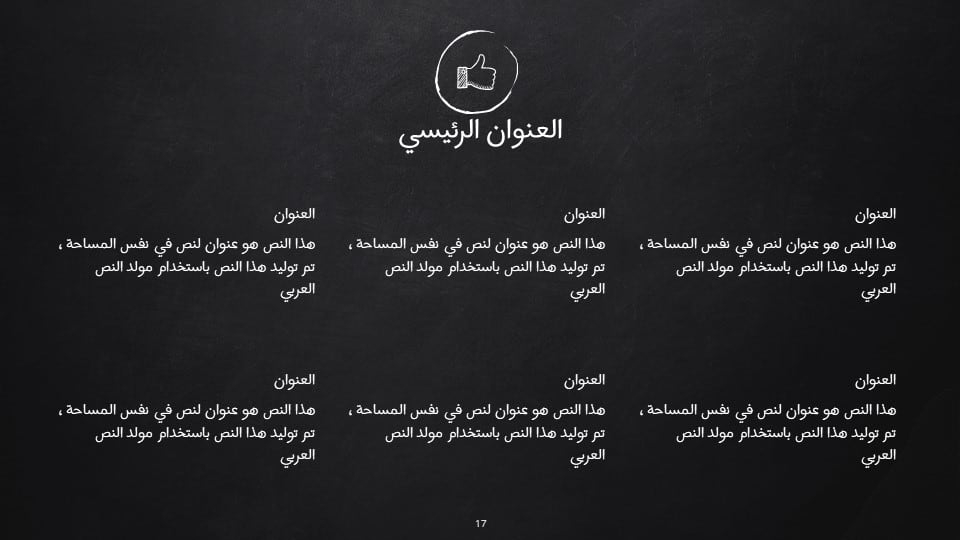 العنوان الرئيسي
العنوان
هذا النص هو عنوان لنص في نفس المساحة ،
تم توليد هذا النص باستخدام مولد النص
العربي
العنوان
هذا النص هو عنوان لنص في نفس المساحة ،
تم توليد هذا النص باستخدام مولد النص
العربي
العنوان
هذا النص هو عنوان لنص في نفس المساحة ،
تم توليد هذا النص باستخدام مولد النص
العربي
العنوان
هذا النص هو عنوان لنص في نفس المساحة ،
تم توليد هذا النص باستخدام مولد النص
العربي
العنوان
هذا النص هو عنوان لنص في نفس المساحة ،
تم توليد هذا النص باستخدام مولد النص
العربي
العنوان
هذا النص هو عنوان لنص في نفس المساحة ،
تم توليد هذا النص باستخدام مولد النص
العربي
17